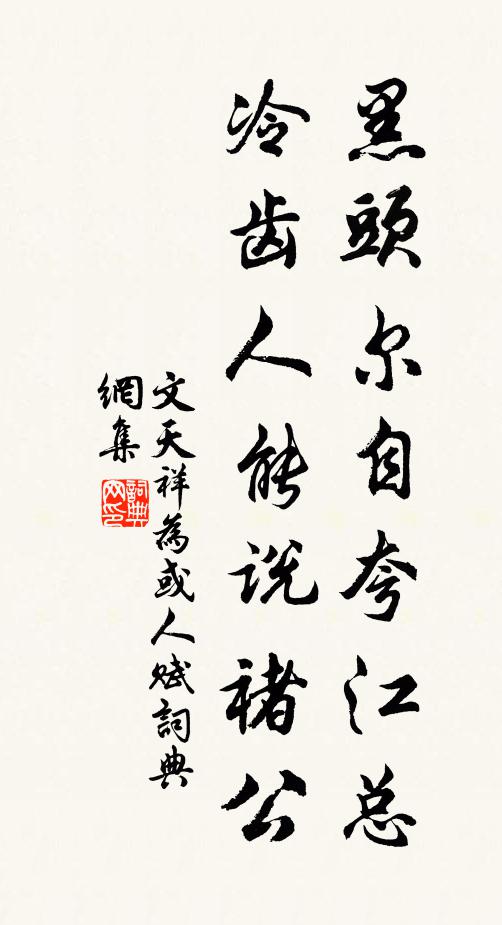 黑頭尔自夸江总
冷齿人能说褚公
文天祥為或人赋詞典
網集
詞典网印